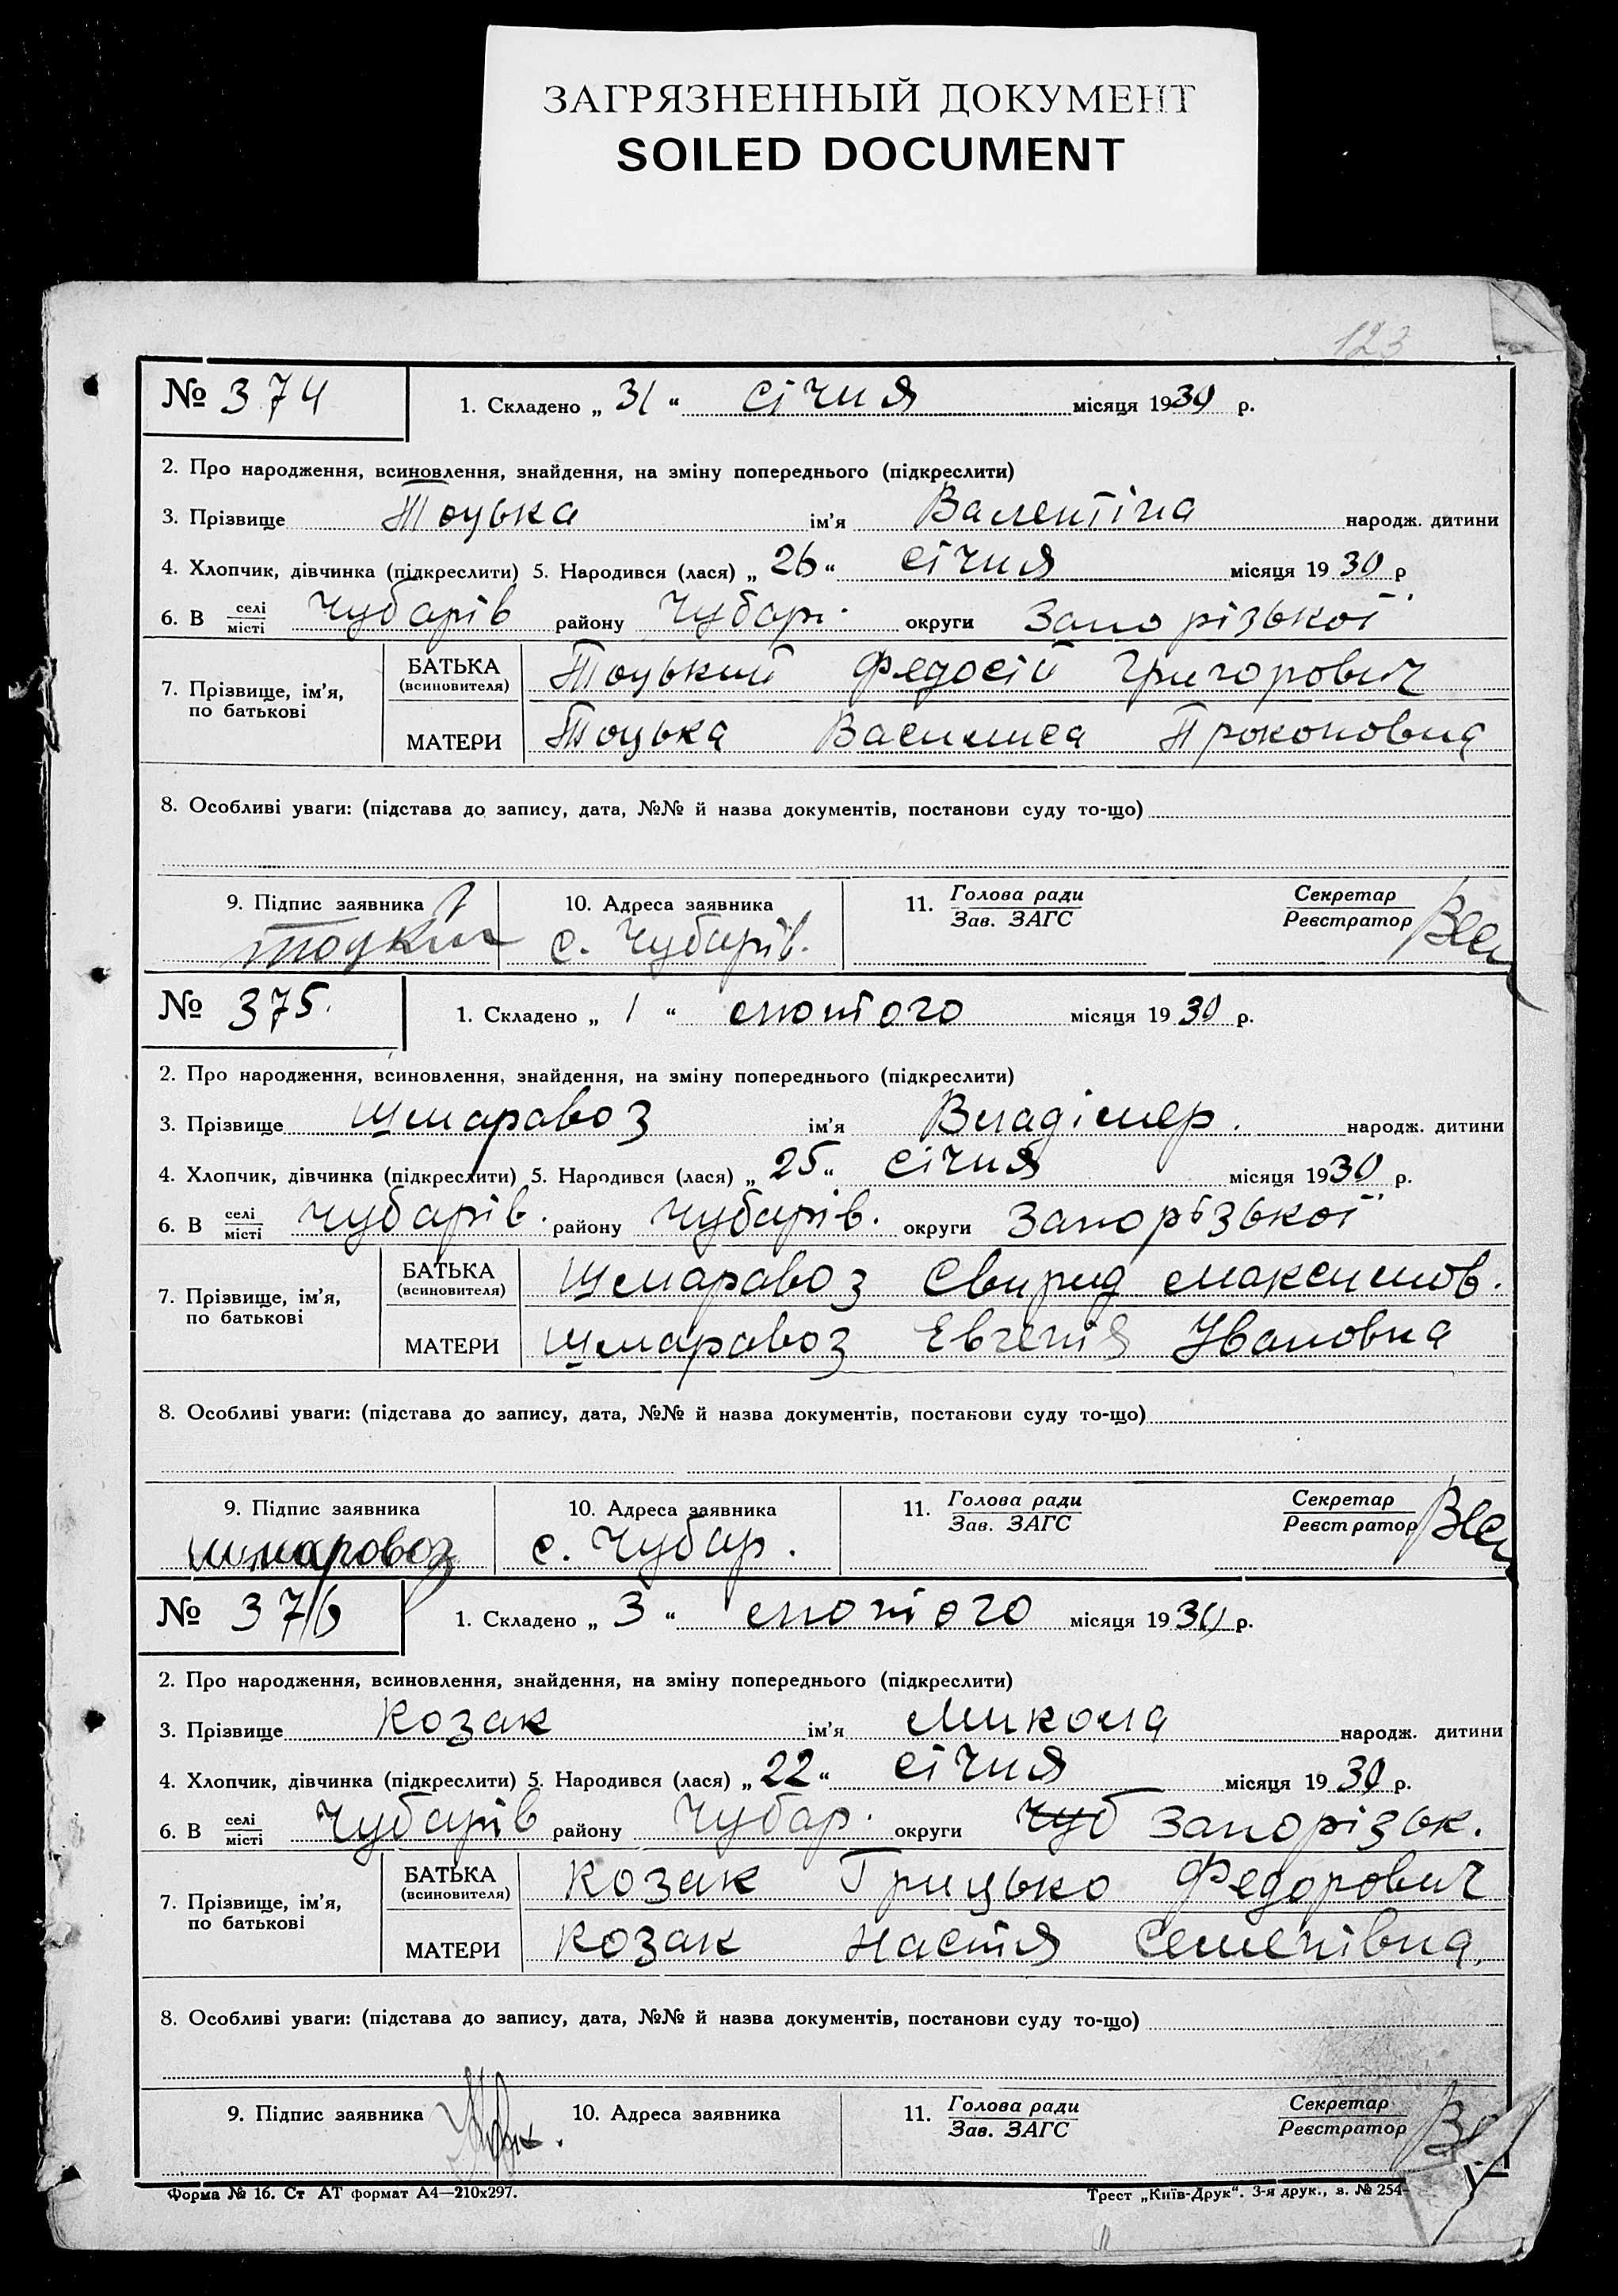 ЗАГРЯЗНЕННЫЙ ДОКУМЕНТ
SOILED DOCUMENT
123
№ 374 1. Складено „ 31 “ січня місяця 1930 р.
2. Про народження, всиновлення, знайдення, на зміну попереднього (підкреслити)
3. Прізвище Тоцька ім’я Валентіна народж. дитини
4. Хлопчик, дівчинка (підкреслити) 5. Народився (лася) „ 26 “ січня місяця 19 30 р
6. В селі місті Чубарів району Чубарі. округи Запорізької
7. Прізвище, ім’я, по батькові
БАТЬКА (всиновителя) Тоцький Федосій Григорович
МАТЕРИ Тоцька Василиса Прокоповна
8. Особливі уваги: (підстава до запису, дата, №№ й назва документів, постанови суду то-що)
9. Підпис заявника 10. Адреса заявника 11. Голова ради Зав. ЗАГС Секретар Реєстратор
с. Чубарів.
№ 375. 1. Складено „ 1 “ лютого місяця 19 30 р.
2. Про народження, всиновлення, знайдення, на зміну попереднього (підкреслити)
3. Прізвище Шмаравоз ім’я Владімер. народж. дитини
4. Хлопчик, дівчинка (підкреслити) 5. Народився (лася) „ 25 “ січня місяця 1930 р.
6. В селі місті Чубарів. району Чубарів. округи Запорізької
7. Прізвище, ім’я, по батькові
БАТЬКА (всиновителя) Шмаравоз Свирид Максимов.
МАТЕРИ Шмаравоз Евгенія Івановна
8. Особливі уваги: (підстава до запису, дата, №№ й назва документів, постанови суду то-що)
9. Підпис заявника 10. Адреса заявника 11. Голова ради Зав. ЗАГС Секретар Реєстратор
шмаровоз с. Чубар.
№ 376 1. Складено „ 3 “ лютого місяця 1930 р.
2. Про народження, всиновлення, знайдення, на зміну попереднього (підкреслити)
3. Прізвище Козак ім’я Микола народж. дитини
4. Хлопчик, дівчинка (підкреслити) 5. Народився (лася) „ 22 “ січня місяця 19 30 р.
6. В селі місті Чубарів району Чубар. округи Чуб Запорізьк.
7. Прізвище, ім’я, по батькові
БАТЬКА (всиновителя) Козак Грицько Федорович
МАТЕРИ Козак Настя Семенівна
8. Особливі уваги: (підстава до запису, дата, №№ й назва документів, постанови суду то-що)
9. Підпис заявника 10. Адреса заявника 11. Голова ради Зав. ЗАГС Секретар Реєстратор
Форма № 16. Ст АТ формат А4—210x297. Трест „Київ-Друк“. 3-я друк., з. № 254-